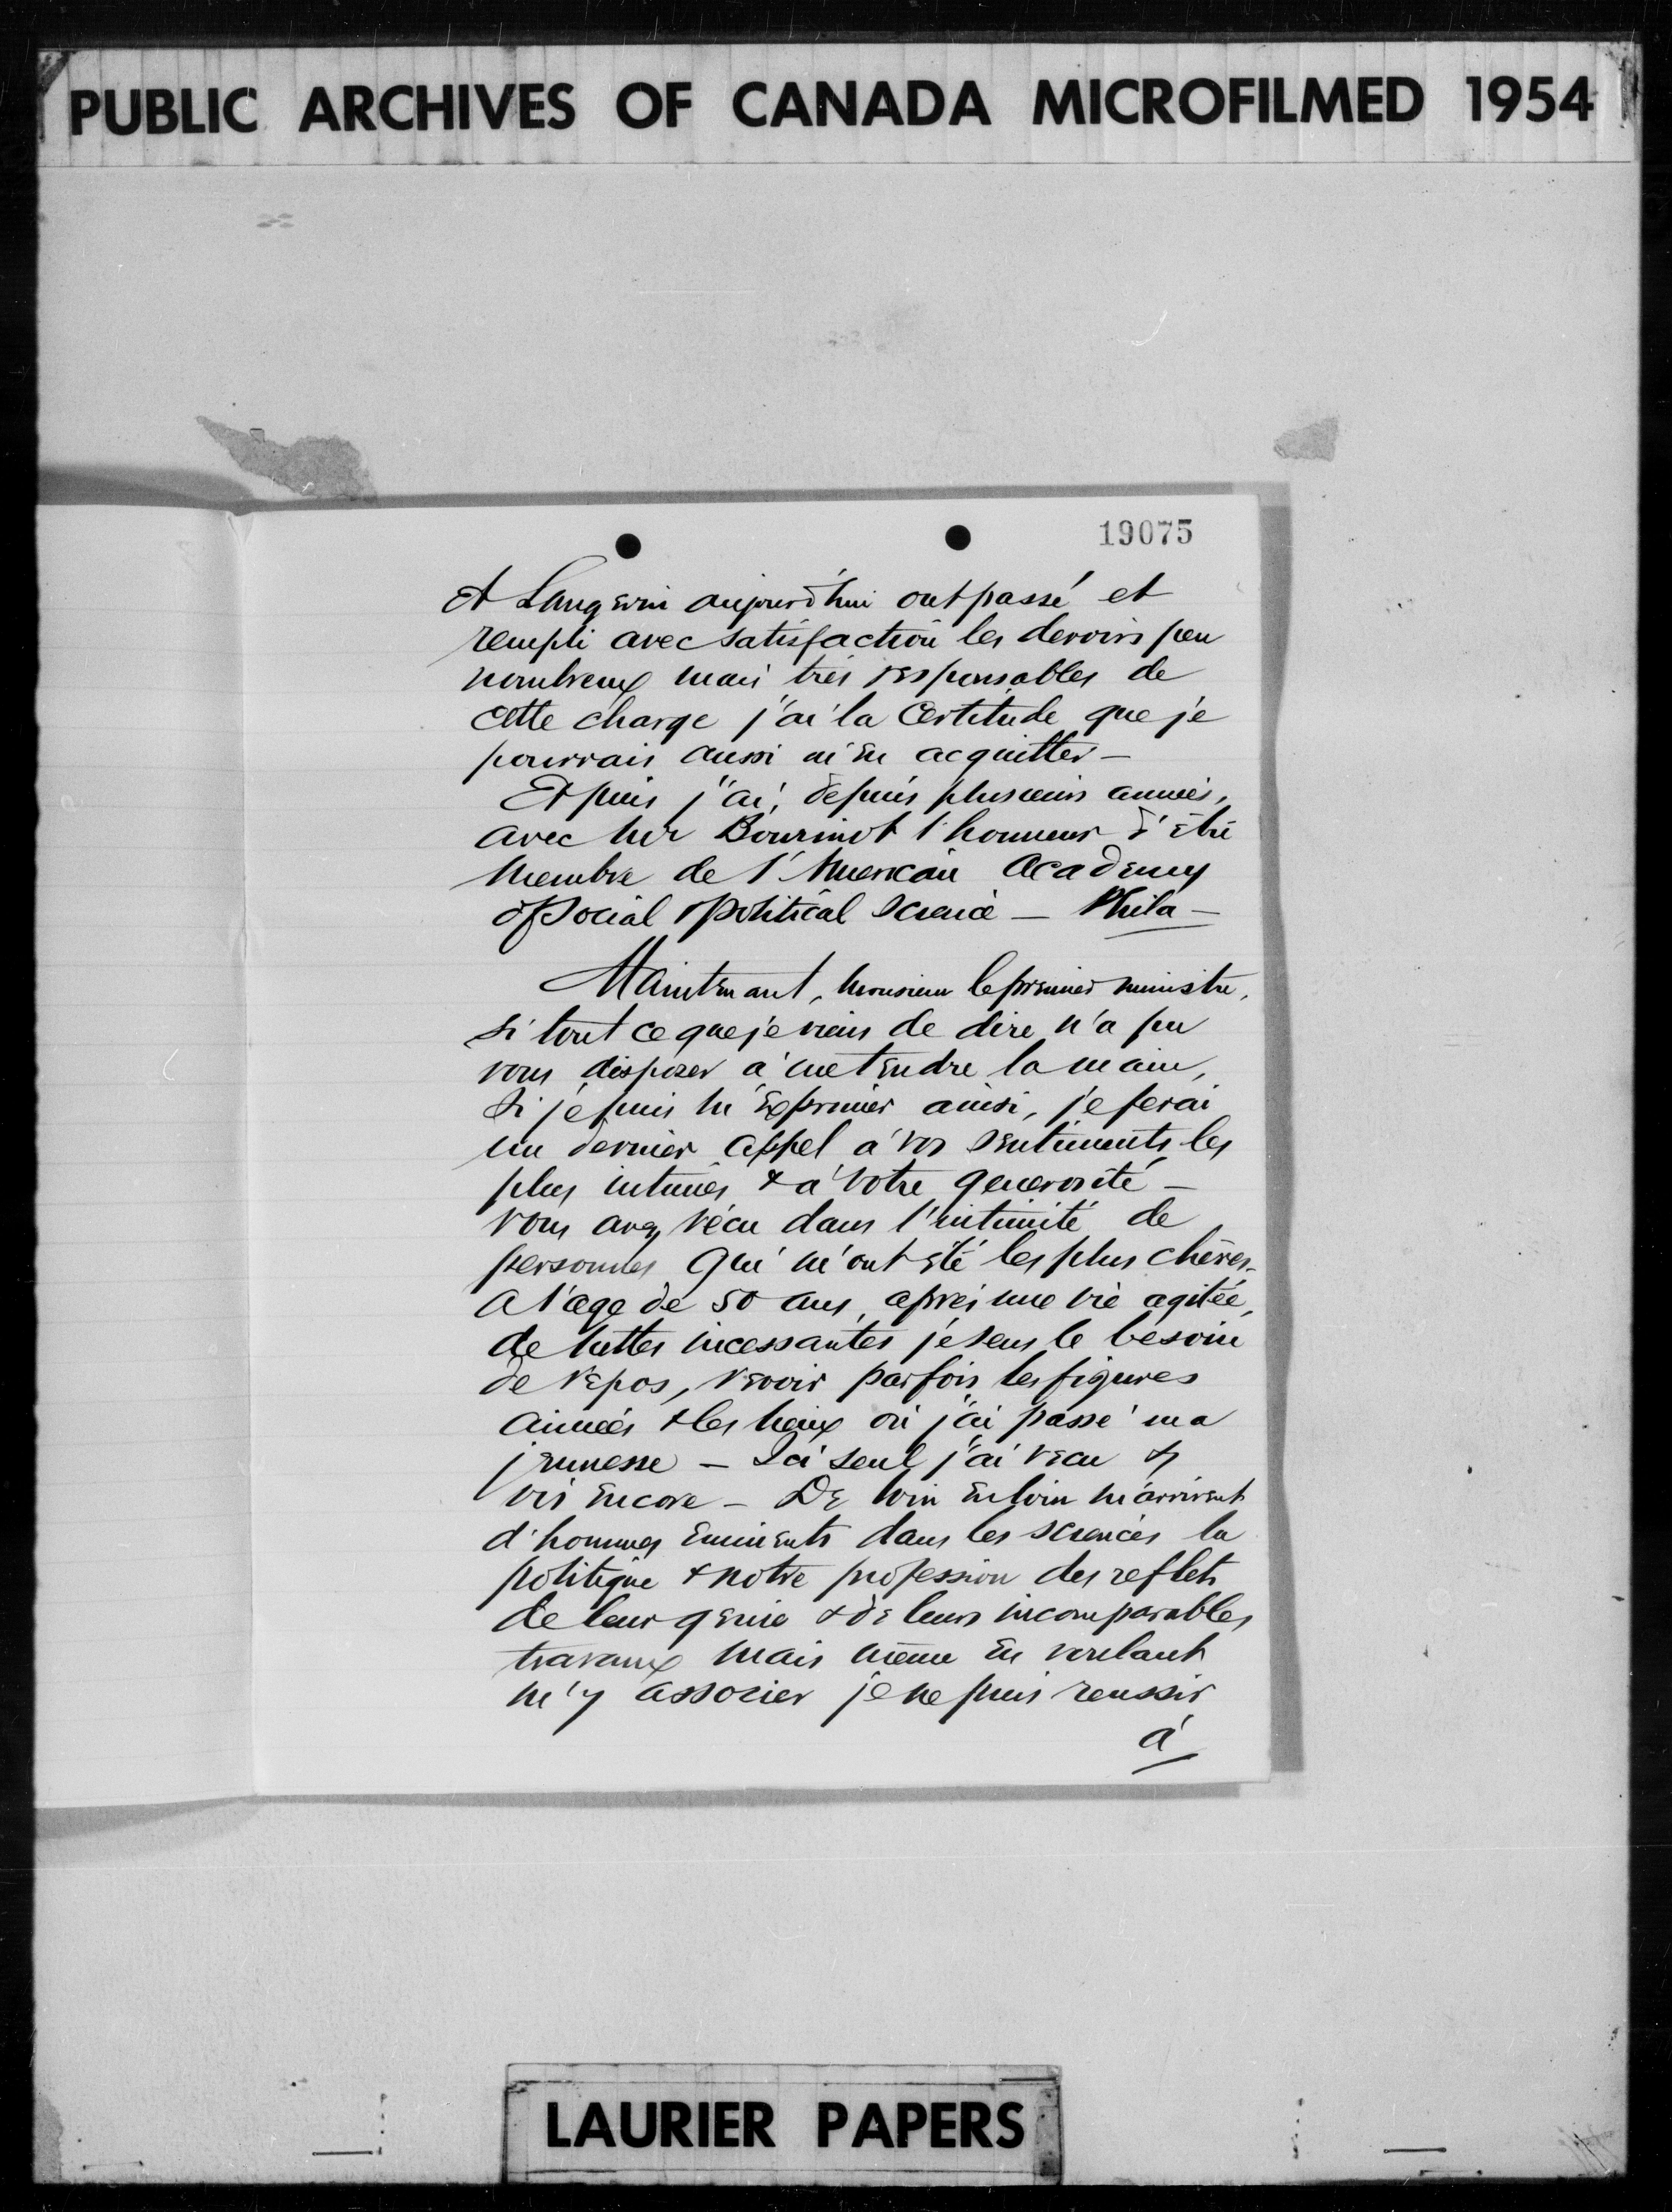 PUBLIC ARCHIVES OF CANADA MICROFILMED 1954
19075
et Langevin aujourd'hui ont passé et
rempli avec satisfaction les devoirs peu
nombreux mais très responsables de
cette charge j'ai la certitude que je
pourrais aussi m'en acquitter —
Et puis j'ai, depuis plusieurs années,
avec Mr Bourinot l'honneur d'être
membre de l'American Academy
of Social & Political Science — Phila —
Maintenant, Monsieur le premier ministre,
si tout ce que je viens de dire n'a pu
vous disposer à me tendre la main,
si je puis m'exprimer ainsi, je ferai
un dernier appel à vos sentiments les
plus intimes & à votre generosité —
vous avez vécu dans l'intimité de
personnes qui m'ont été les plus chères —
A l'age de 50 ans, après une vie agitée,
de luttes incessantes je sens le besoin
de repos, revoir parfois les figures
aimées & les lieux où j'ai passé ma
jeunesse — Ici seul j'ai vecu &
vis encore — De loin en loin m'arrivent
d'hommes eminents dans les sciences la
politique & notre profession des reflets
de leur genie & de leurs incomparables
travaux mais même en voulant
m'y associer je ne puis reussir
à
LAURIER PAPERS